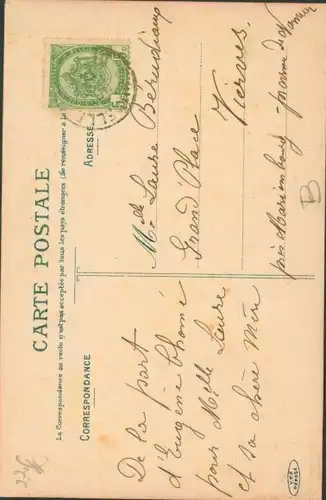 CARTE POSTALE
La Correspondance au recto n'est pas acceptée par tous les pays étrangers (Se renseigner à la
CORRESPONDANCE
ADRESSE
De la part
d'Eugène
pour Mlle Laure
et sa chère Mère
Melle Laure
Grand'Place
Vierves
près Mariembourg - province de Namur
B